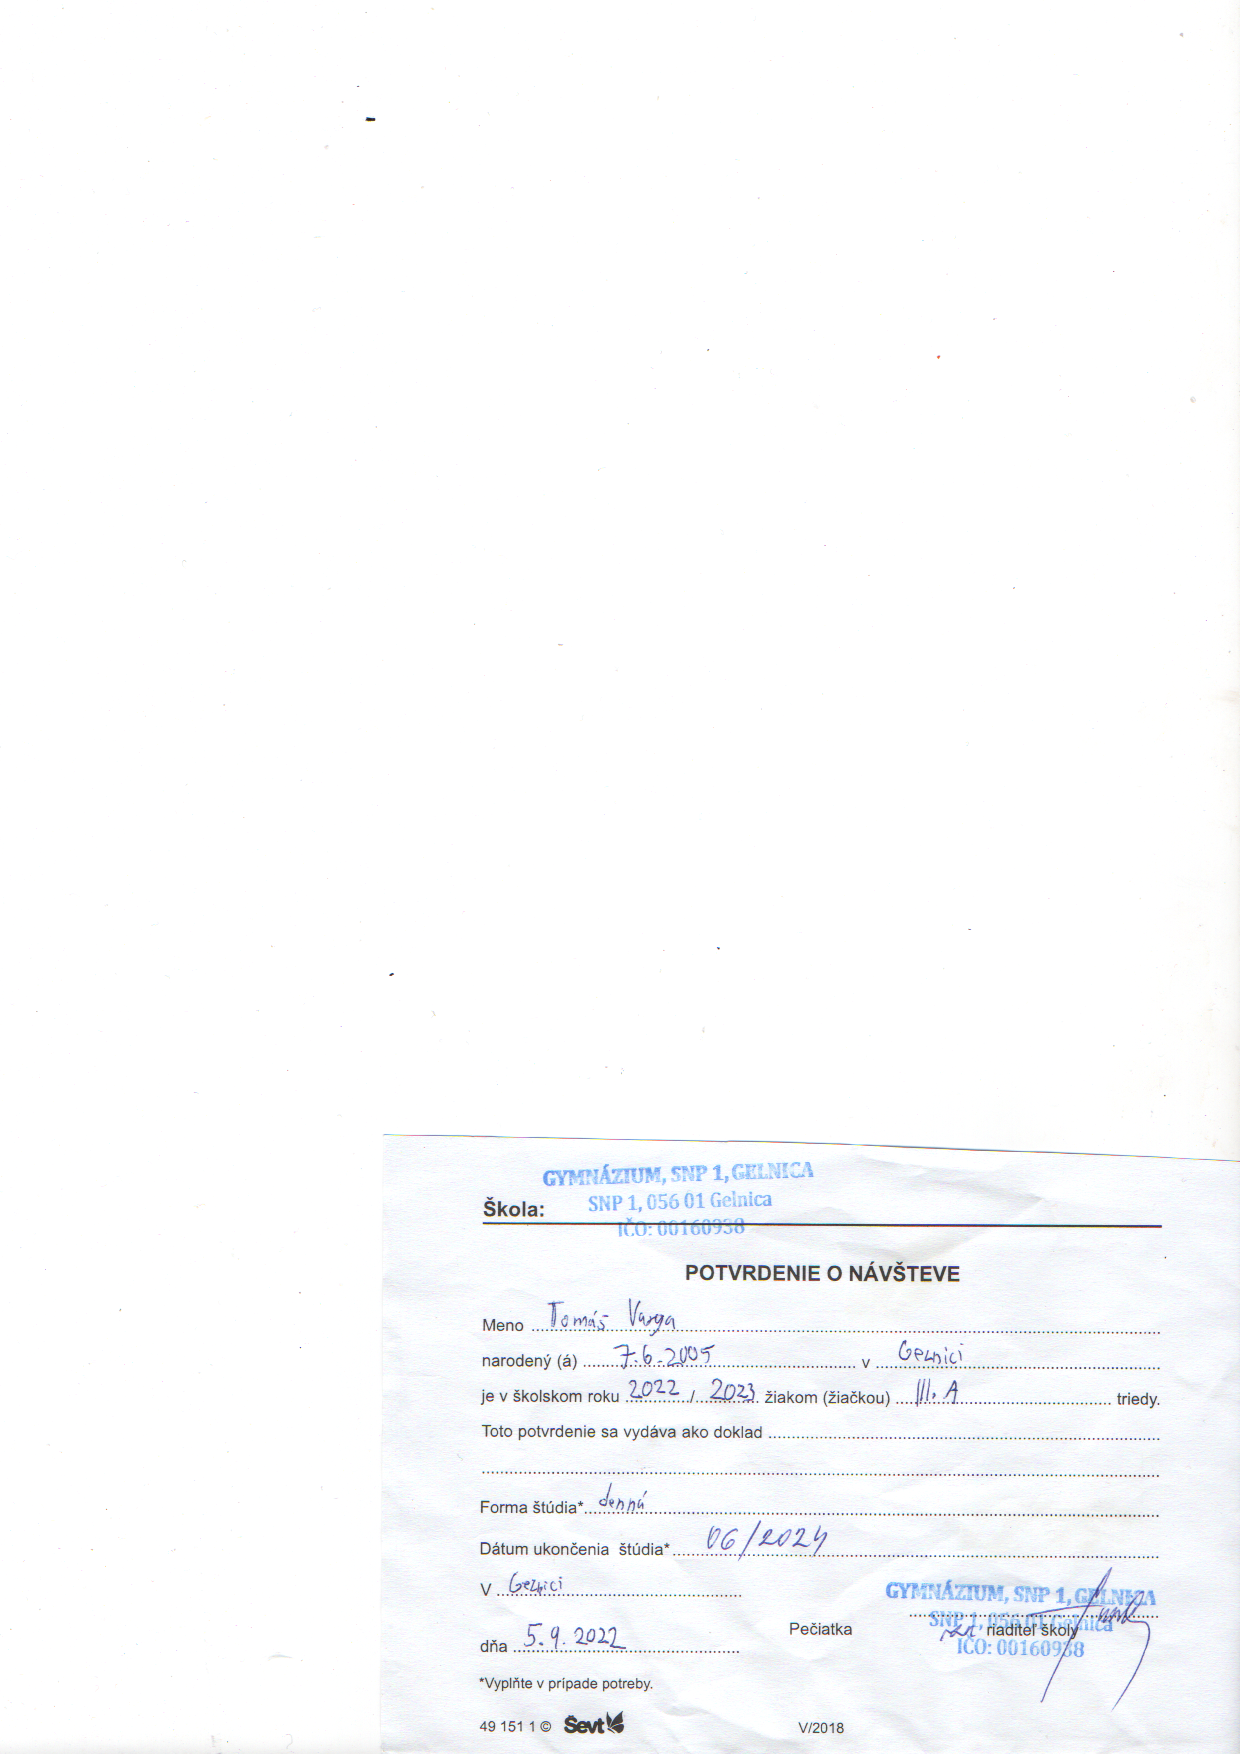 GYMNÁZIUM, SNP 1, GELNICA
SNP 1, 056 01 Gelnica
Škola:
IČO: 00160938
POTVRDENIE O NÁVŠTEVE
Meno Tomáš Varga
narodený (á) 7.6.2005 v Gelnici
je v školskom roku 2022 / 2023 žiakom (žiačkou) III. A triedy.
Toto potvrdenie sa vydáva ako doklad
Forma štúdia* denná
Dátum ukončenia štúdia* 06/2024
V Gelnici
GYMNÁZIUM, SNP 1, GELNICA
SNP 1, 056 01 Gelnica
Pečiatka riaditeľ školy
dňa 5.9.2022
IČO: 00160938
*Vyplňte v prípade potreby.
49 151 1 © Ševt V/2018